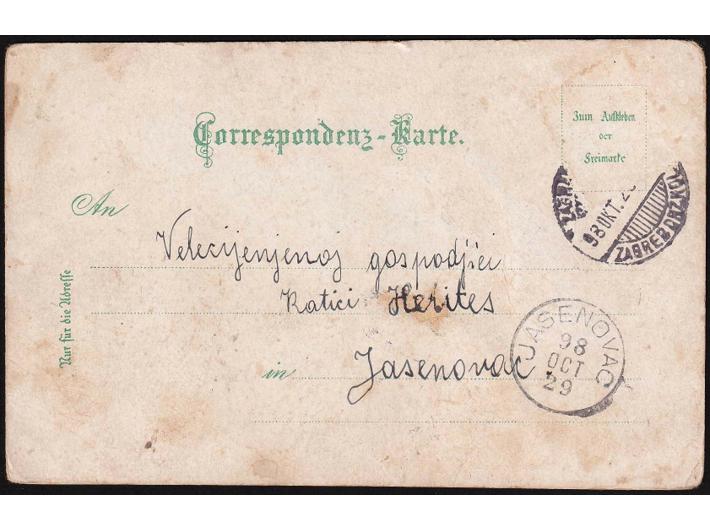 Correspondenz-Karte.
Zum Aufkleben
der
Freimarke
98 OKT. 2
ZAGREB
An
Velecijenjenoj gospodjici
Katici Herites
in Jasenovac
JASENOVAC
98
OCT
29
Nur für die Adresse